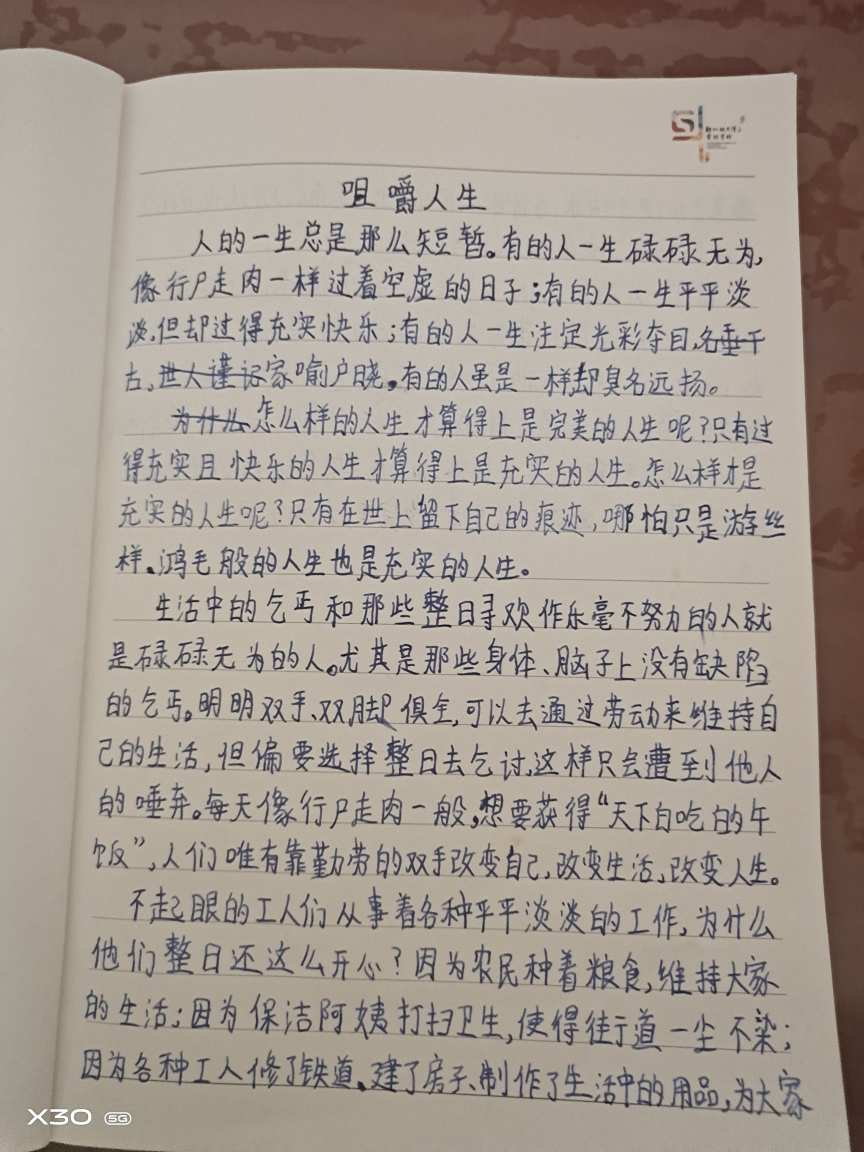 咀嚼人生
人的一生总是那么短暂。有的人一生碌碌无为,
像行尸走肉一样过着空虚的日子;有的人一生平平淡
淡,但却过得充实快乐;有的人一生注定光彩夺目,名垂千
古、世人谨记家喻户晓。有的人虽是一样,却臭名远扬。
为什么怎么样的人生才算得上是完美的人生呢?只有过
得充实且快乐的人生才算得上是充实的人生。怎么样才是
充实的人生呢?只有在世上留下自己的痕迹,哪怕只是游丝
样、鸿毛般的人生也是充实的人生。
生活中的乞丐和那些整日寻欢作乐毫不努力的人就
是碌碌无为的人。尤其是那些身体、脑子上没有缺陷
的乞丐。明明双手、双脚俱全,可以去通过劳动来维持自
己的生活,但偏要选择整日去乞讨,这样只会遭到他人
的唾弃。每天像行尸走肉一般,想要获得“天下白吃的午
饭”,人们唯有靠勤劳的双手改变自己,改变生活,改变人生。
不起眼的工人们从事着各种平平淡淡的工作,为什么
他们整日还这么开心?因为农民种着粮食,维持大家
的生活;因为保洁阿姨打扫卫生,使得街道一尘不染;
因为各种工人修了铁道、建了房子、制作了生活中的用品,为大家
X30 5G